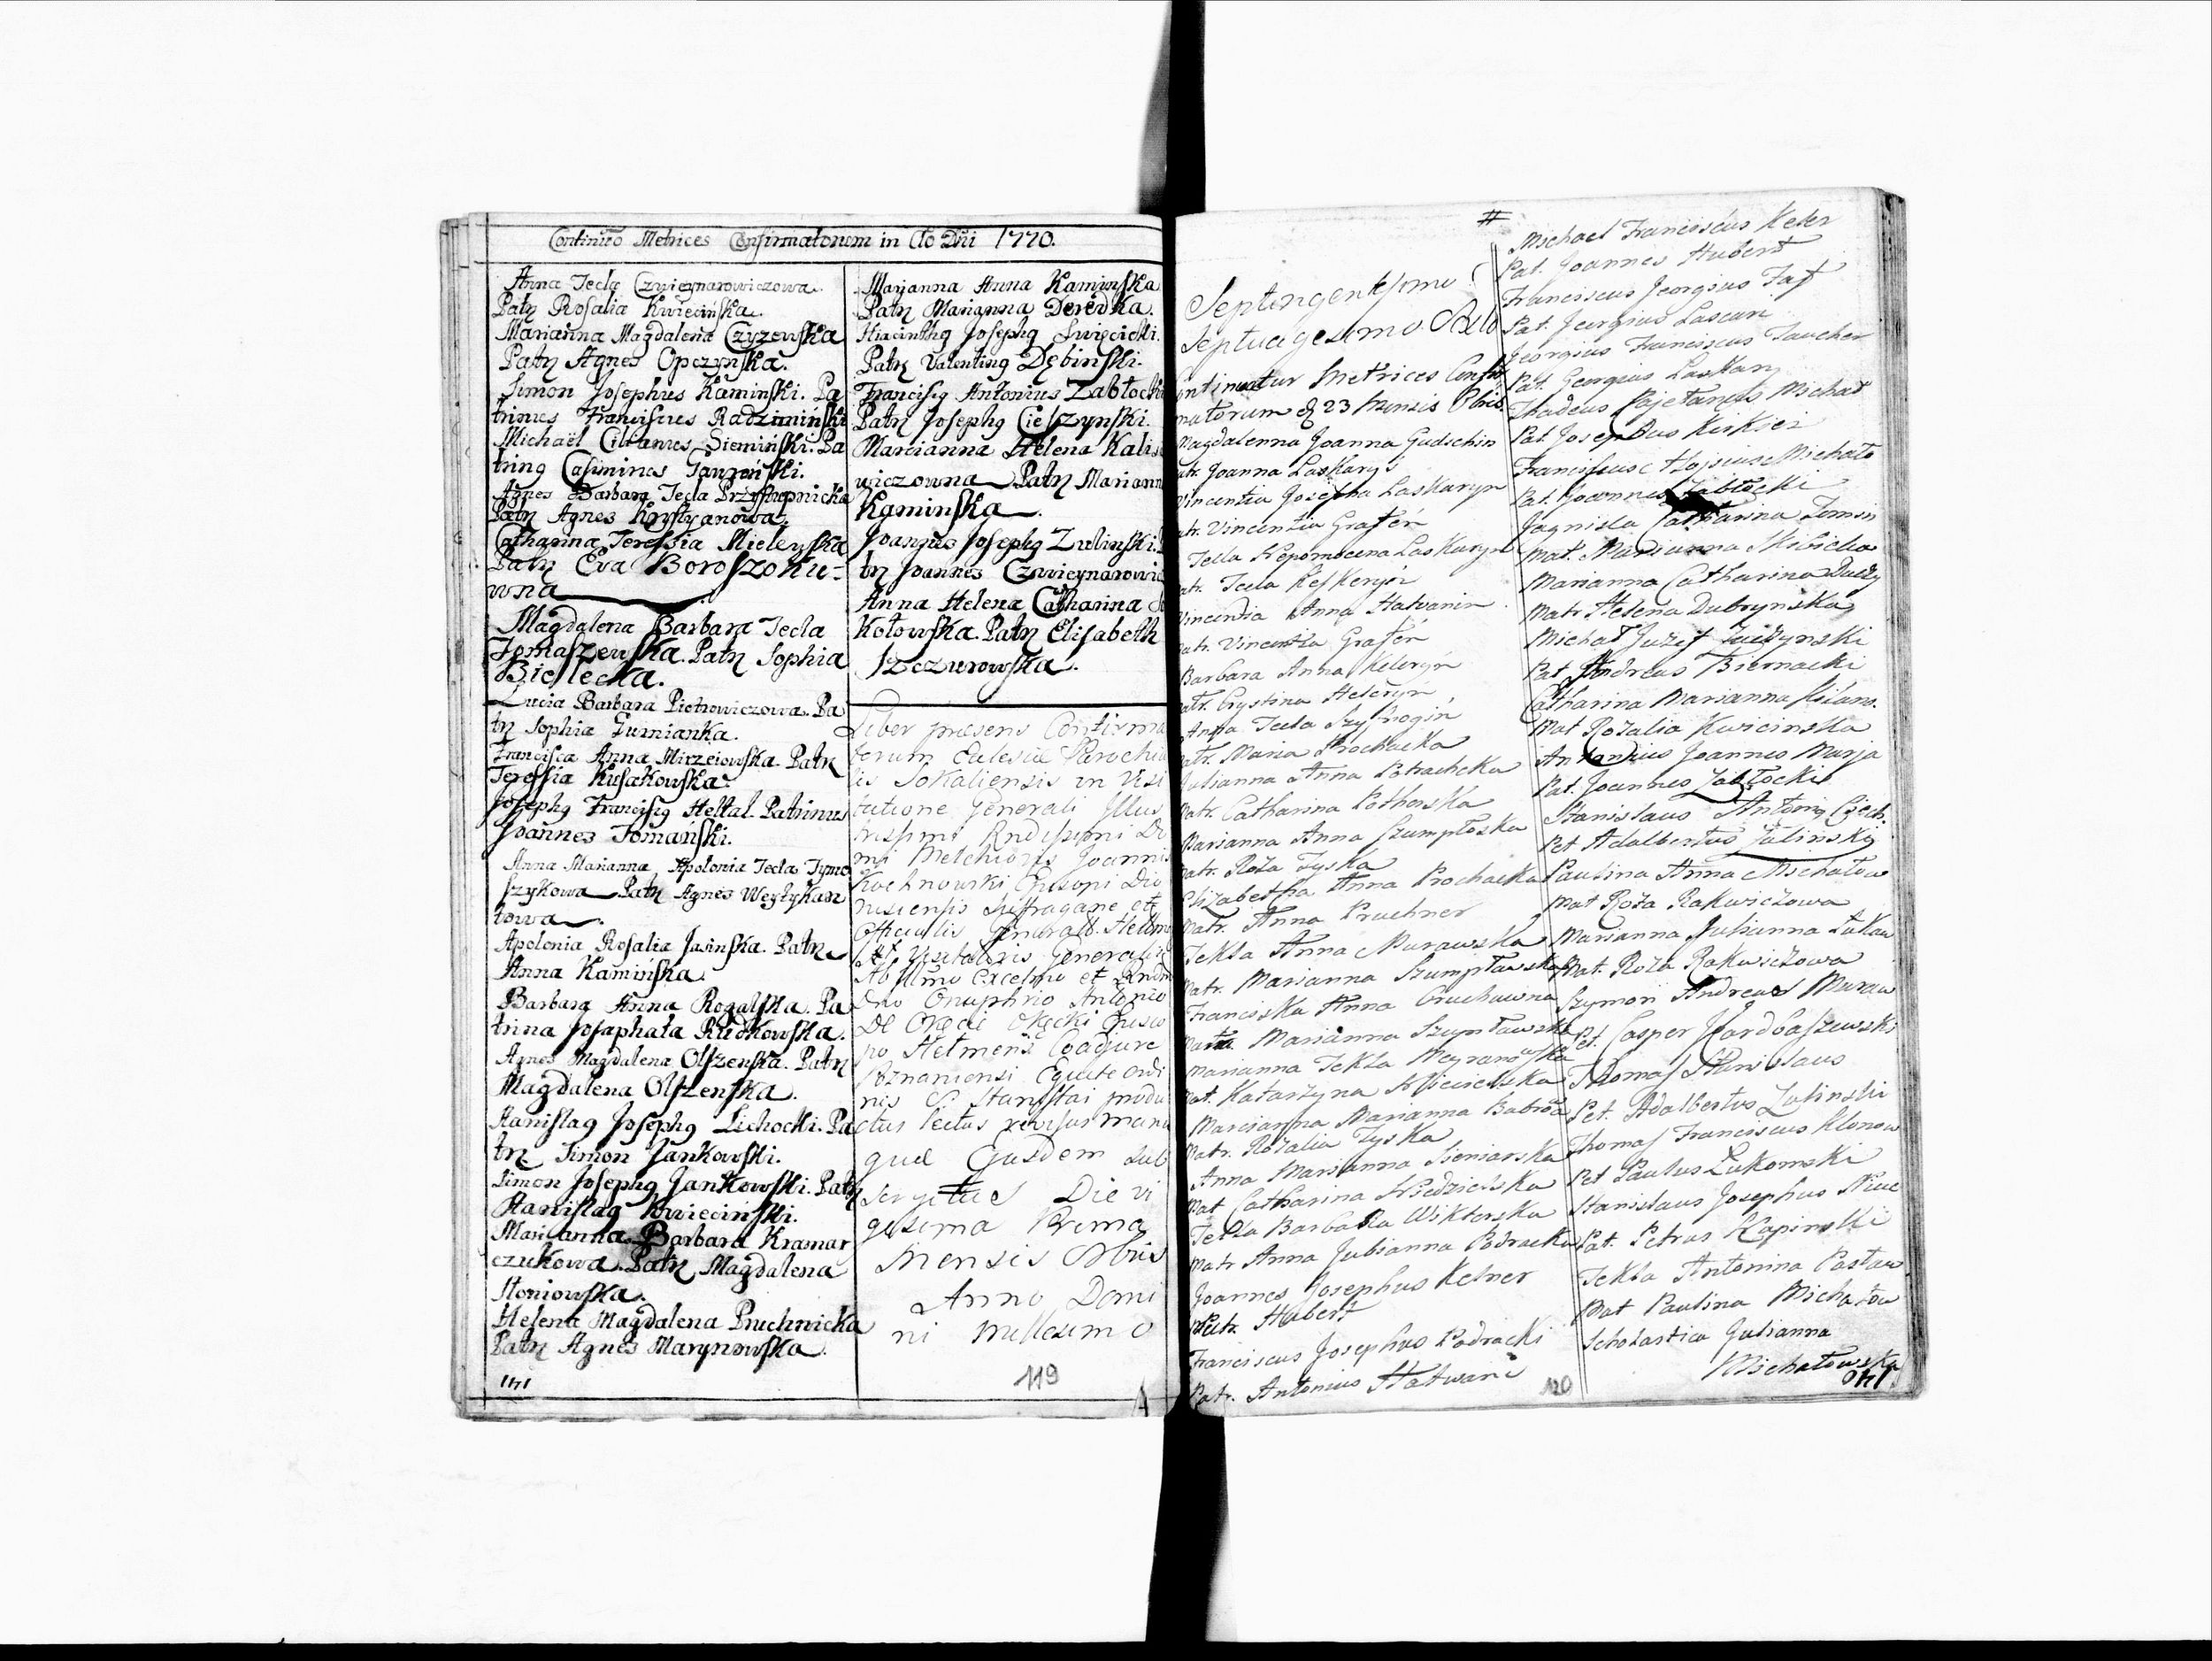 Continuo Metrices Confirmatorum in Ao Dni 1770.
Anna Tecla Czwieynarowiczowa.
Patn Rosalia Kwiecińska.
Marianna Magdalena Czyzewska
Patn Agnes Opczynska.
Simon Josephus Kaminski. Pa
trinus Franciscus Radziminski
Michaël Cilianus Siemiński. Pa
tring Casimirus
Agnes Barbara Tecla Przystupnicka
Patn Agnes Krystyanowa.
Catharina Teressia Mieleyska
Patn Eva Boroszoniu=
wna
Magdalena Barbara Tecla
Tomaszewska. Patn Sophia
Bielecka.
Lucia Barbara Pietrowiczowa. Pa
tn Sophia Gurnianka.
Francisca Anna Mirzeiowska. Patn
Teressia Kusakowska.
Josephg Francisg Heltal. Patrinus
Joannes Tomanski.
Anna Marianna Apolonia Tecla Tymo
szykowa Patn Agnes
towa.
Apolonia Rosalia Jasinska. Patn
Anna Kamińska.
Barbara Anna Rogalska. Pa
trina Josaphata Rudkowska.
Agnes Magdalena Olszenska. Patn
Magdalena Olszenska.
Stanislag Josephg Lichocki. Pa
tn Simon Jankowski.
Simon Josephg Jankowski. Patn
Stanislag Kwiecinski.
Marianna Barbara Kramar
czukowa. Patn Magdalena
Stoniowska.
Helena Magdalena Pruchnicka
Patn Agnes Marynowska.
141
Marjanna Anna Kaminska
Patn Marianna Deredka.
Hiacinthg Josephg Swięcicki.
Patn Valenting Dębinski.
Francisg Antonius Zabłocki
Patn Josephg Cieszynski.
Marcianna Helena Kalis
wiczowna Patn Mariann
Kaminska.
Joannes Josephg Zulinski. P
tn Joannes Czwieynarowic
Anna Helena Catharina So
kołowska. Patn Elisabeth
Szczurowska.
Liber præsens Confirma
torum Eclesia Parochia
lis Sokaliensis in Visi
tatione Generali Illus
trissimi Rndissimi Do
mi Melchioris Joannis
Kochnowski Episopi Dio
nisiensis Suffragane et
Officialis Generalis
Visitatoris Generalis
Ab Illmo Excelmo et Rndm
Dno Onuphrio Antonio
De Okęcie Okęcki Episco
po Coadjure
Poznaniensi Equite ordi
nis S. Stanislai produ
ctus lectus revisus manu
que Ejusdem sub
scriptus Die vi
gesima Prima
Mensis Obris
Anno Domi
ni Millesimo
119
#
Septingentesimo
Septuagesimo
ontinuatur Metrices Confir
matorum 23 Mensis Obris.
Magdalenna Joanna Gudschin
atr. Joanna Laskarys
Vincentia Josepha Laskaryn
atr. Vincentia Grafén
Tecla Nepomocena Laskaryn
atr. Tecla
Vincentia Anna Hatvanin
atr. Vincentia Grafén
Barbara Anna Keleryn
atr. Crystina
Anna Tecla
atr. Maria Prochacka
Julianna Anna Potracheka
Patr. Catharina Pothorska
Marianna Anna Szumptoska
Patr. Roża Tyska
Elizabetha Anna Prochacka
Matr. Anna Pruchner
Tekla Anna Murawska
Matr. Marianna Szumptawska
Franciska Anna
Matr. Marianna Szumtawska
Marianna Tekla
Mat. Katarzyna
Marcianna Marianna Babroo
Matr. Rozalia Tyska
Anna Marianna Sieniarska
Mat Catharina Niedzielska
Tekla Barbara Wikterska
Matr Anna Julianna Podracka
Joannes Josephus Kelner
Patr. Hubert
Franciscus Josephus Podracki
Patr. Antonius Hatwani
120
Michael Franciscus Keler
Pat. Joannes Hubert
Franciscus Jeorgius
Pat. Jeorgius Lascari
Jeorgius Franciscus Taucher
Pat. Georgius Laskary
Thadeus Cajetanus Michał
Pat. Josephus
Franciscus Alojsius Michało
Pat. Joannes Zabłocki
Catharina Tomsin
Mat. Marianna Skibicka
Marianna Catharina
Matr Helena Dubrynska
Michał Juzef
Pat Andreas Biernacki
Catharina Marianna
Mat Rozalia Kwicinska
Antonius Joannes
Pat. Joannes Zabłocki
Stanislaus Antoniq
Pet Adalbertus Zalinski
Paulina Anna Michałow
Mat Roża Rakwiczowa
Marianna Julianna Łukaw
Mat. Roża Rakwiczowa
Szymon Andreas Muraw
Pet. Casper
Thomas Stanislaus
Pet. Adalbertus Zalinski
Thomas Franciscus Klonow
Pet Paulus Łukomski
Stanislaus Josephus
Pat. Petrus Kapinski
Tekla Antonina Pasław
Mat Paulina Michałow
Scholastica Julianna
Michałowska